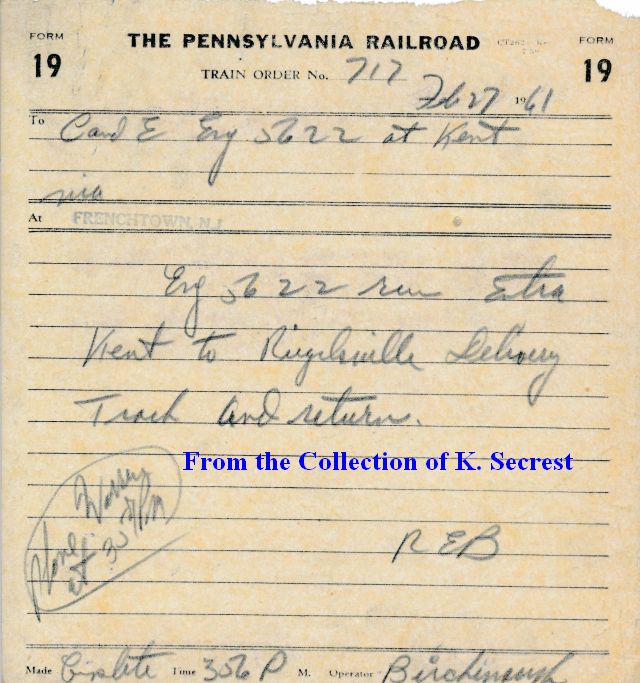 FORM 19 THE PENNSYLVANIA RAILROAD FORM 19
TRAIN ORDER No. 717
Feb 27 1961
To C and E Eng 5622 at Kent
via
At FRENCHTOWN, N.J.
Eng 5622 run Extra
Kent to Riegelsville Delivery
Track and return.
From the Collection of K. Secrest
Phone
at 30 PM
REB
Made Complete Time 356 P M. Operator